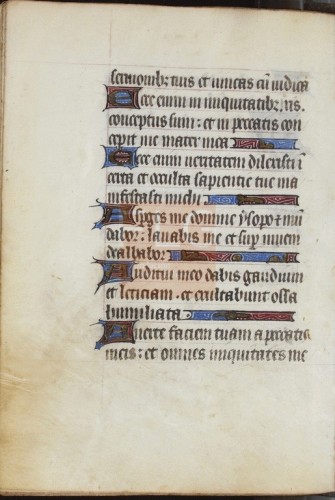 sermonibȝ tuis et vincas cū iudica
Ecce enim in iniquitatibȝ
conceptus sum: et in peccatis con
cepit me mater mea
Ecce enim ueritatem dilexisti ī
certa et occulta sapientie tue ma
nifestasti michi
Asperges me domine ysopo et mū
dabor: lauabis me et sup niuem
dealbabor
Auditui meo dabis gaudium
et leticiam. et exultabunt ossa
humiliata
Auerte faciem tuam a peccatis
meis: et omnes iniquitates me